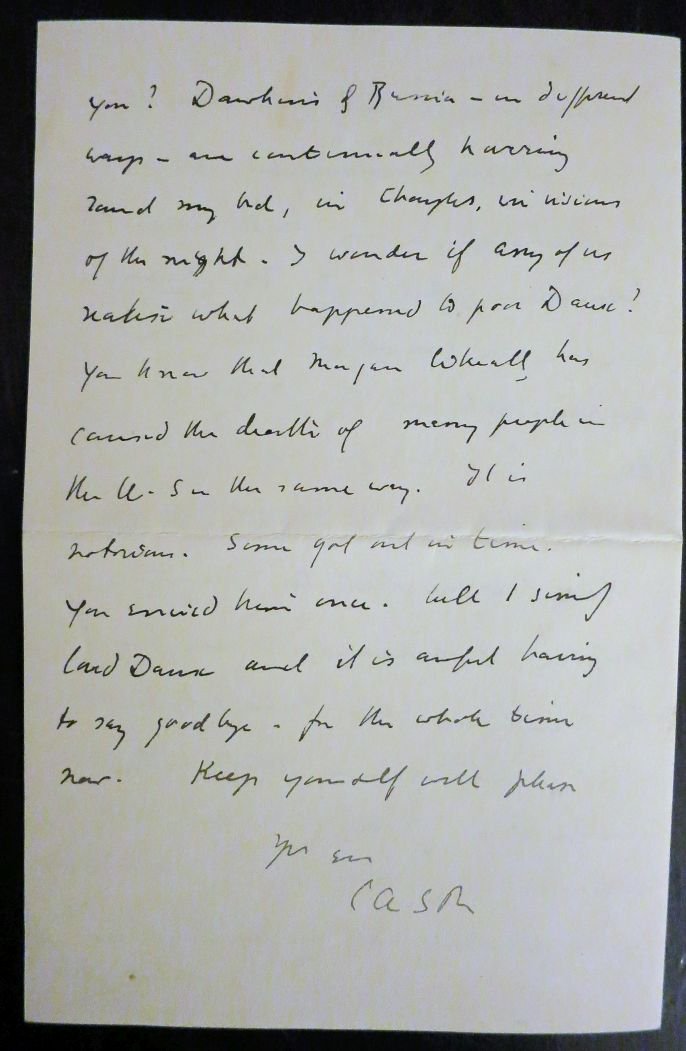 you? Dawkins & Russia - in different
ways - are continually hovering
round my bed, in thoughts, in visions
of the night - I wonder if any of us
realise what happened to poor Dawk?
You know that Morgan has
caused the death of many people in
the U.S in the same way. It is
notorious. Some got out in time.
You him once. Well I simply
loved Dawk and it is awful having
to say goodbye - for the whole time
now. Keep yourself well please
Yrs ever